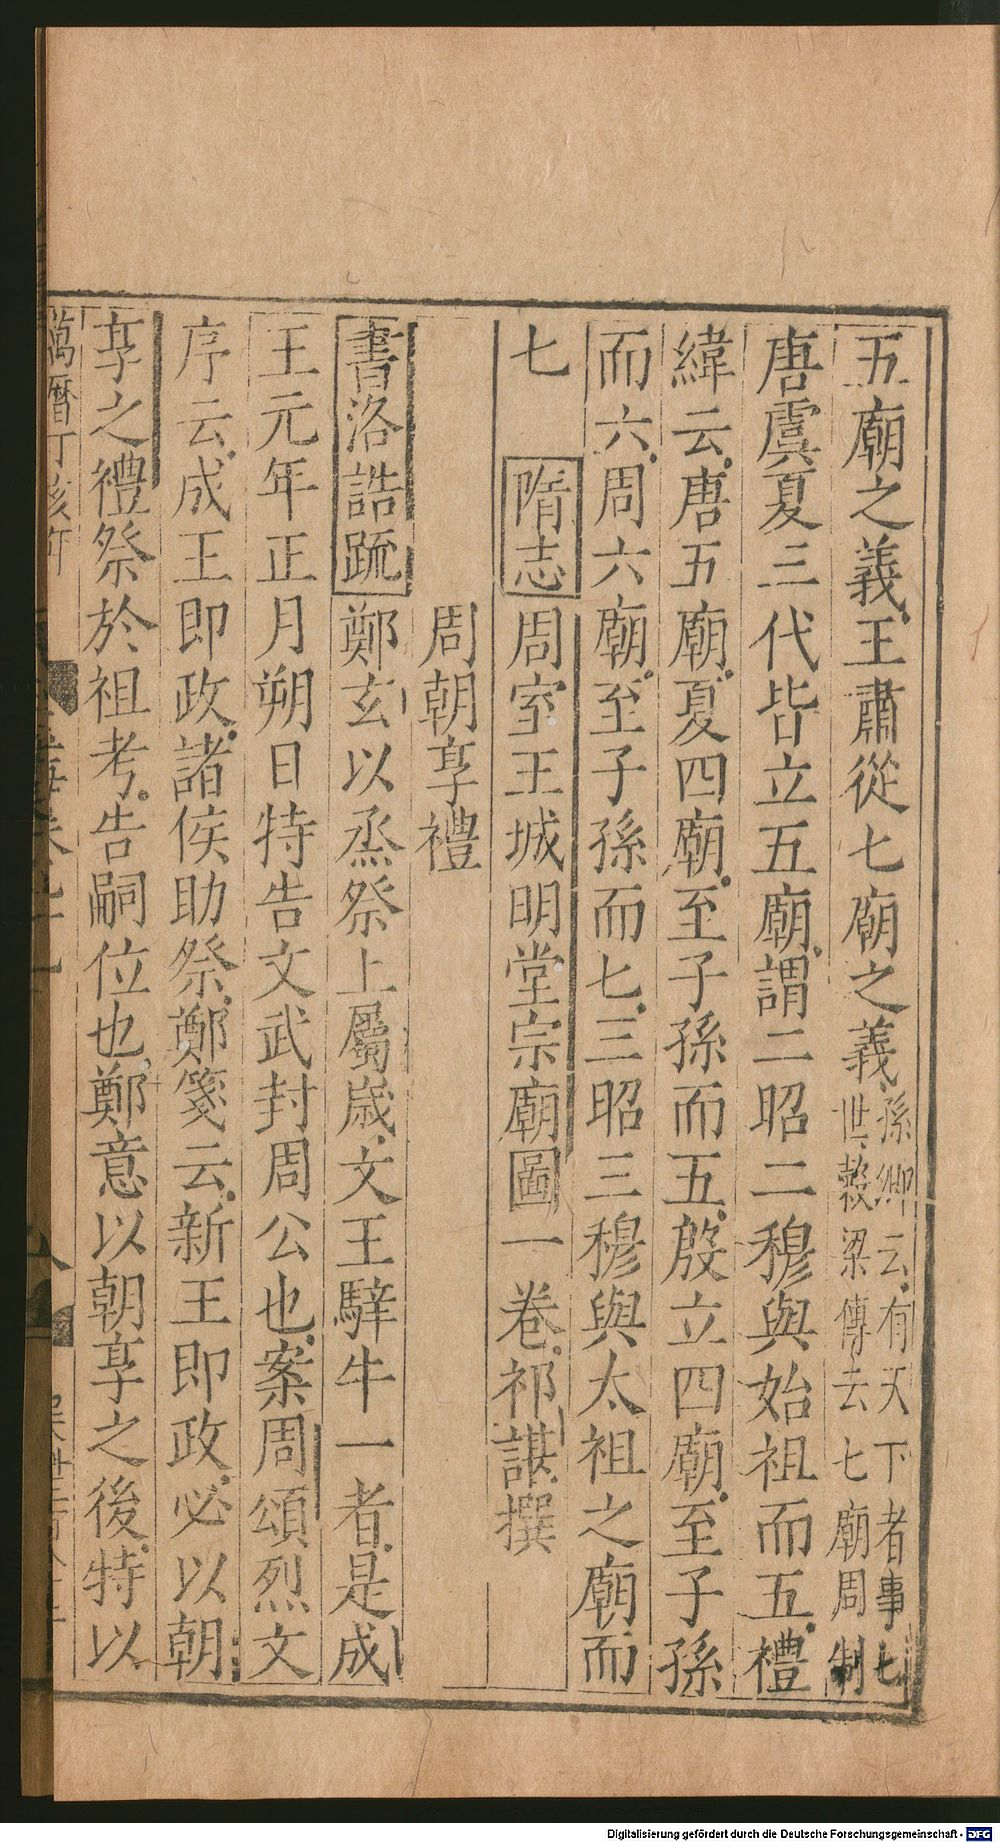 五廟之義王肅從七廟之義孫卿云有天下者事七世穀梁傳云七廟周制
唐虞夏三代皆立五廟謂二昭二穆與始祖而五禮
緯云唐五廟夏四廟至子孫而五殷立四廟至子孫
而六周六廟至子孫而七三昭三穆與太祖之廟而
七 隋志周室王城明堂宗廟圖一卷祁諶撰
周朝享禮
書洛誥疏鄭玄以烝祭上屬歲文王騂牛一者是成
王元年正月朔日特告文武封周公也案周頌烈文
序云成王即政諸侯助祭鄭箋云新王即政必以朝
享之禮祭於祖考告嗣位也鄭意以朝享之後特以
萬曆丁亥年
Digitalisierung gefördert durch die Deutsche Forschungsgemeinschaft - DFG